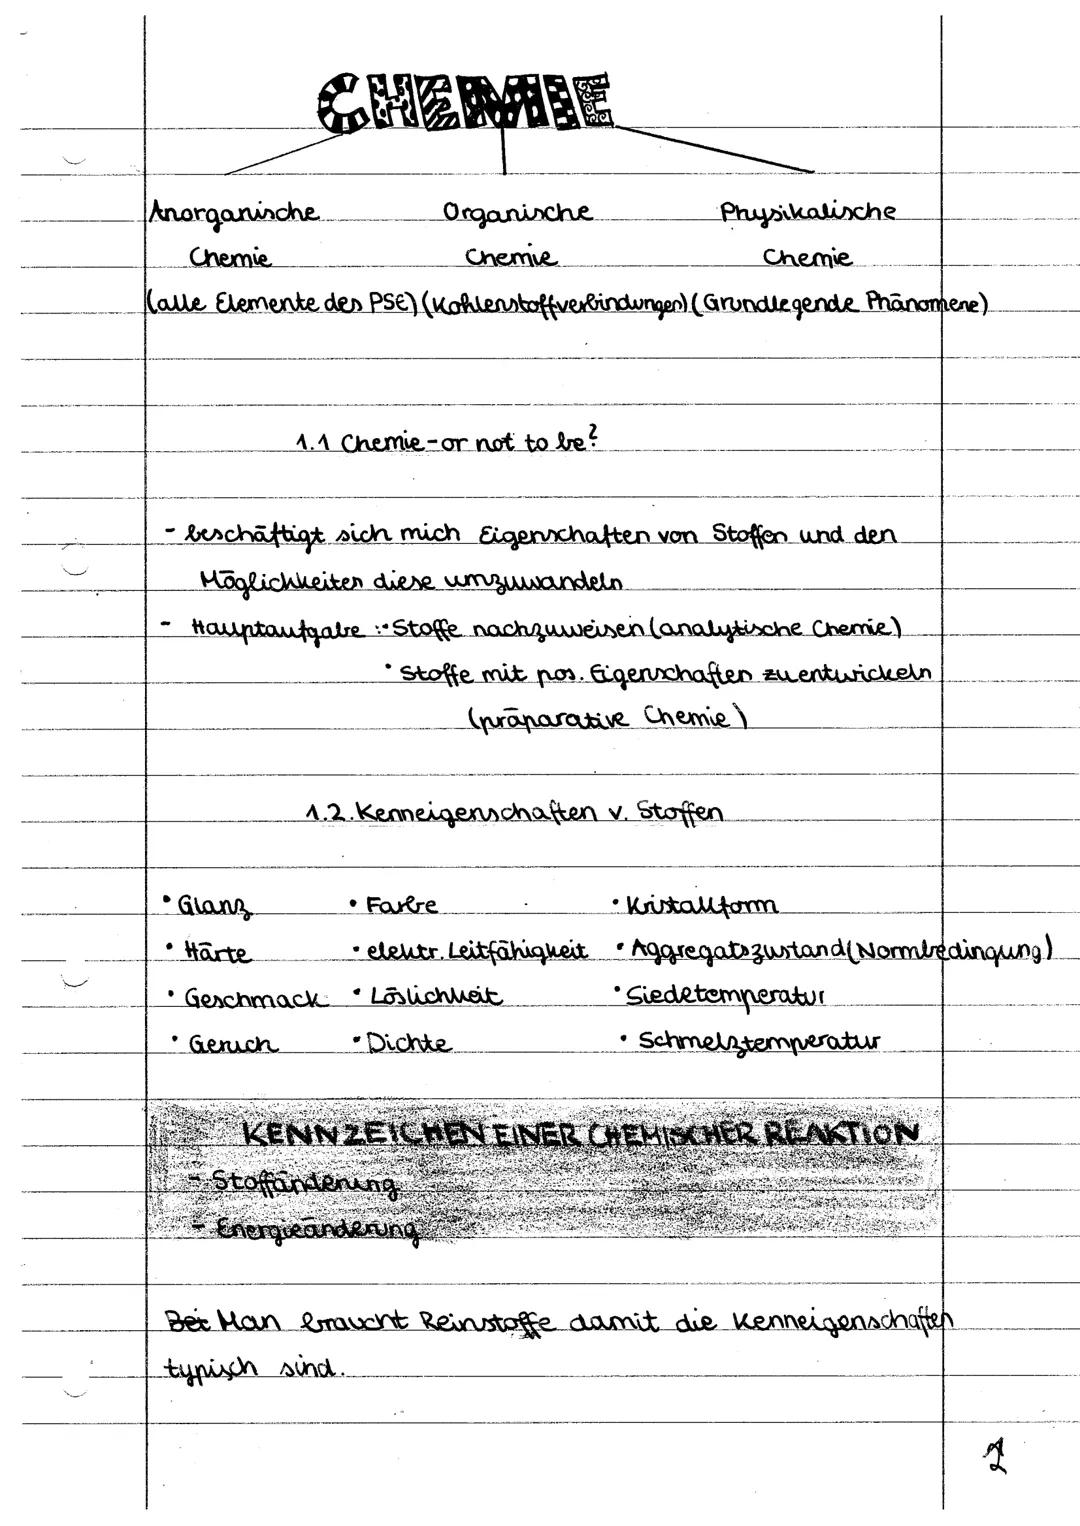 CHEMIE
Anorganische Organische Physikalische
Chemie Chemie Chemie
(alle Elemente des PSE) (Kohlenstoffverbindungen) (Grundlegende Phänomene)
1.1 Chemie - or not to be?
- beschäftigt sich mich Eigenschaften von Stoffen und den
Möglichkeiten diese umzuwandeln
- Hauptaufgabe :• Stoffe nachzuweisen (analytische Chemie)
• Stoffe mit pos. Eigenschaften zu entwickeln
(präparative Chemie)
1.2. Kenneigenschaften v. Stoffen
• Glanz • Farbe • Kristallform
• Härte • elektr. Leitfähigkeit • Aggregatszustand (Normbedingung)
• Geschmack • Löslichkeit • Siedetemperatur
• Geruch • Dichte • Schmelztemperatur
KENNZEICHEN EINER CHEMISCHER REAKTION
- Stoffänderung
- Energieänderung
Bei Man braucht Reinstoffe damit die Kenneigenschaften
typisch sind.
1